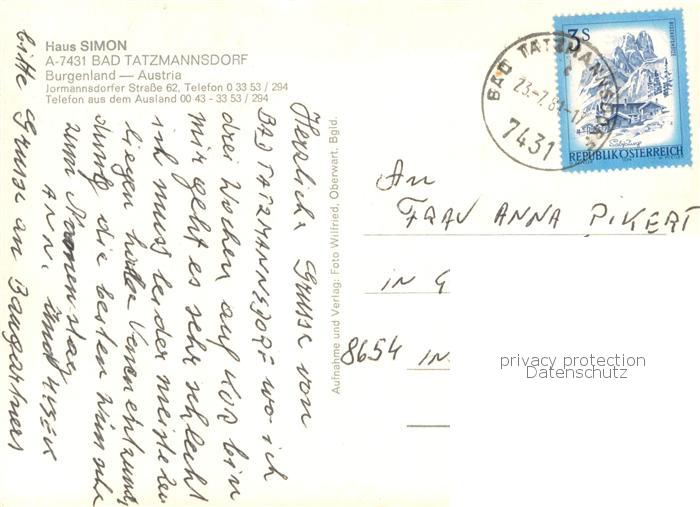 Haus SIMON
A-7431 BAD TATZMANNSDORF
Burgenland — Austria
Jormannsdorfer Straße 62, Telefon 0 33 53 / 294
Telefon aus dem Ausland 00 43 - 33 53 / 294
Herzliche Grüsse von
BAD TATZMANNSDORF wo ich
drei Wochen auf KUR bin
mir geht es sehr schlecht
ich muss leider meiste Zeit
liegen hatte Venenentzündung
die besten Wünsche
zum Namenstag
ANNI und
bitte Grüsse an Baugartners
Aufnahme und Verlag: Foto Wilfried, Oberwart, Bgld.
BAD TATZMANNSDORF
23.-7.81-17
7431
3 S
REPUBLIK ÖSTERREICH
An
FRAU ANNA PIKERT
IN G
8654 IN
privacy protection
Datenschutz